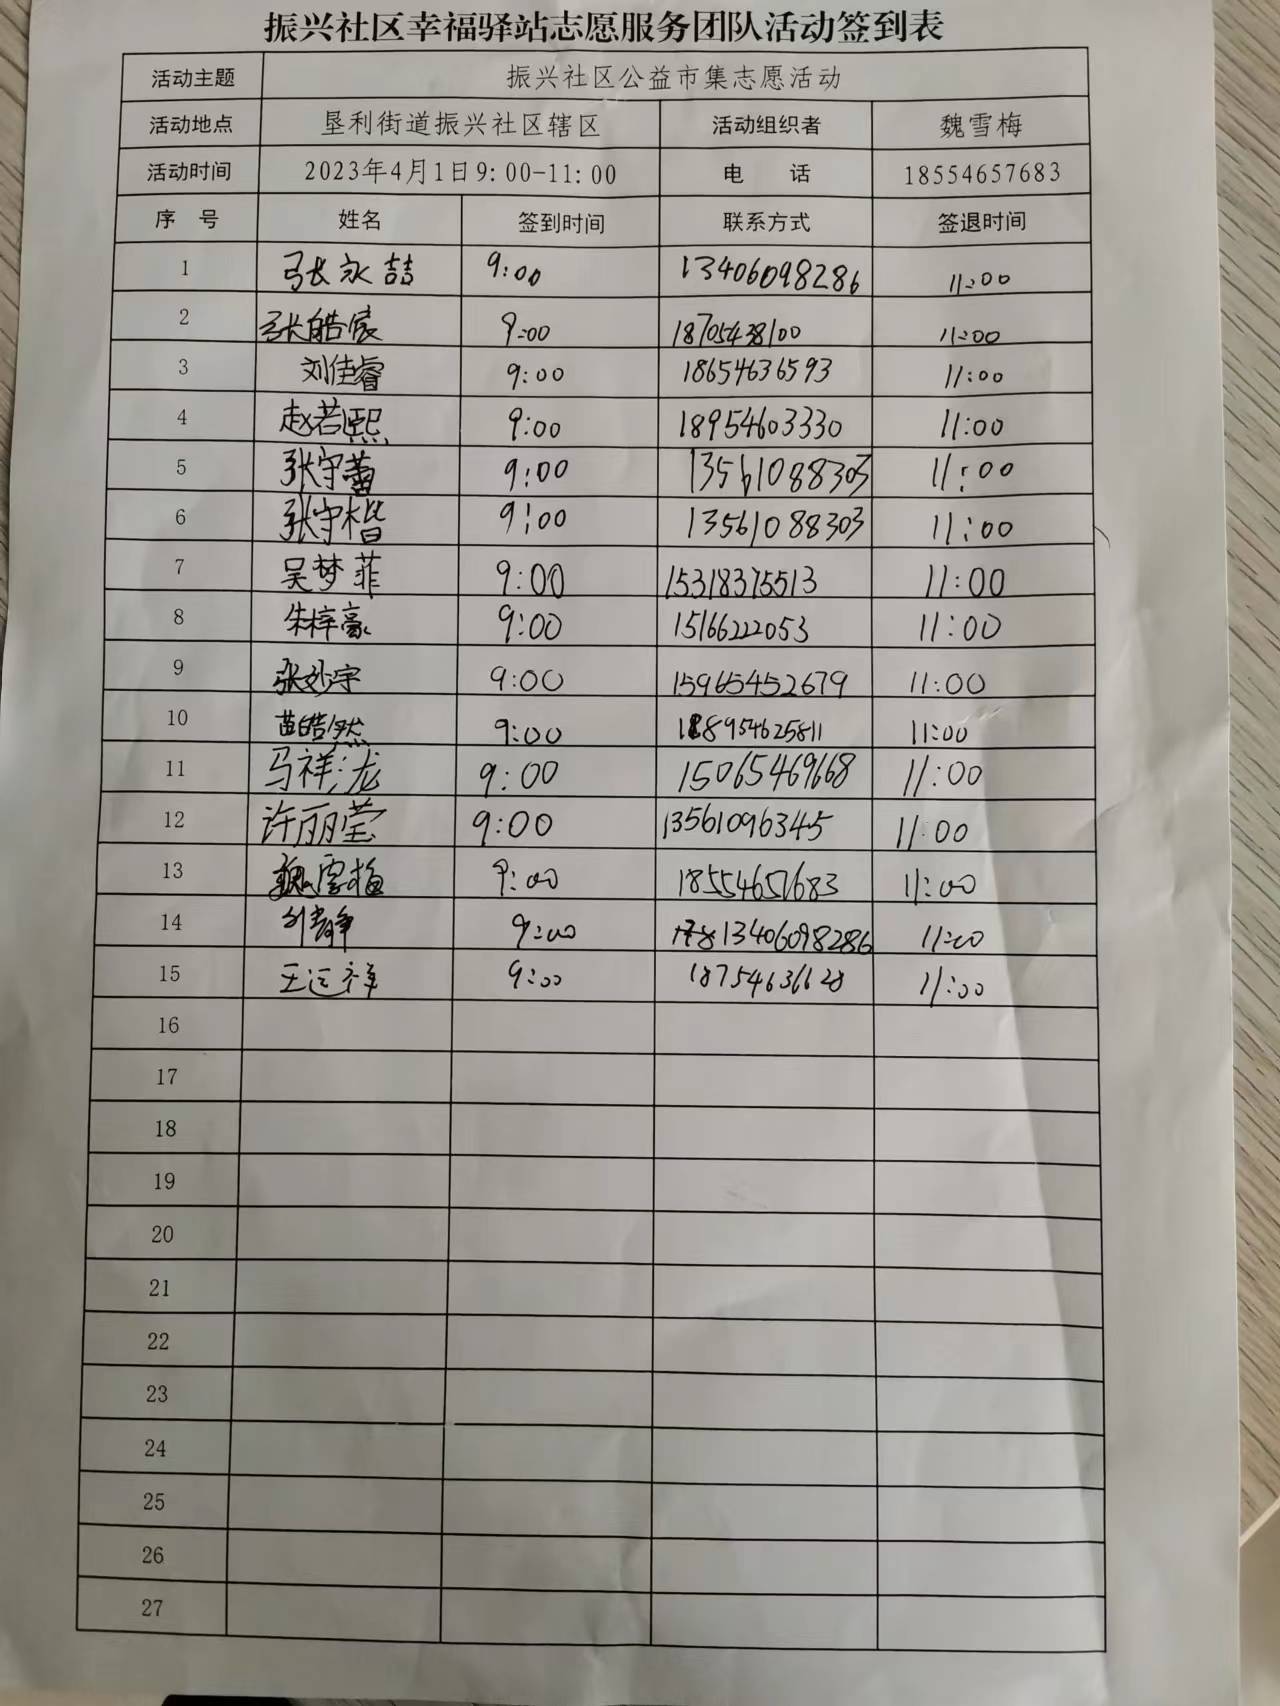 振兴社区幸福驿站志愿服务团队活动签到表
活动主题 振兴社区公益市集志愿活动
活动地点 垦利街道振兴社区辖区 活动组织者 魏雪梅
活动时间 2023年4月1日9:00-11:00 电 话 18554657683
序 号 姓名 签到时间 联系方式 签退时间
1 张永喆 9:00 13406098286 11:00
2 张皓宸 9:00 18705438100 11:00
3 刘佳睿 9:00 18654636593 11:00
4 赵若熙 9:00 18954603330 11:00
5 张守蕾 9:00 13561088303 11:00
6 张守楷 9:00 13561088303 11:00
7 吴梦菲 9:00 15318375513 11:00
8 朱梓豪 9:00 15166222053 11:00
9 张妙宇 9:00 15965452679 11:00
10 苗皓然 9:00 18954625811 11:00
11 马祥龙 9:00 15065469668 11:00
12 许丽莹 9:00 13561096345 11:00
13 魏雪梅 9:00 18554657683 11:00
14 刘静 9:00 13406098286 11:00
15 王运祥 9:00 18754636628 11:00
16
17
18
19
20
21
22
23
24
25
26
27